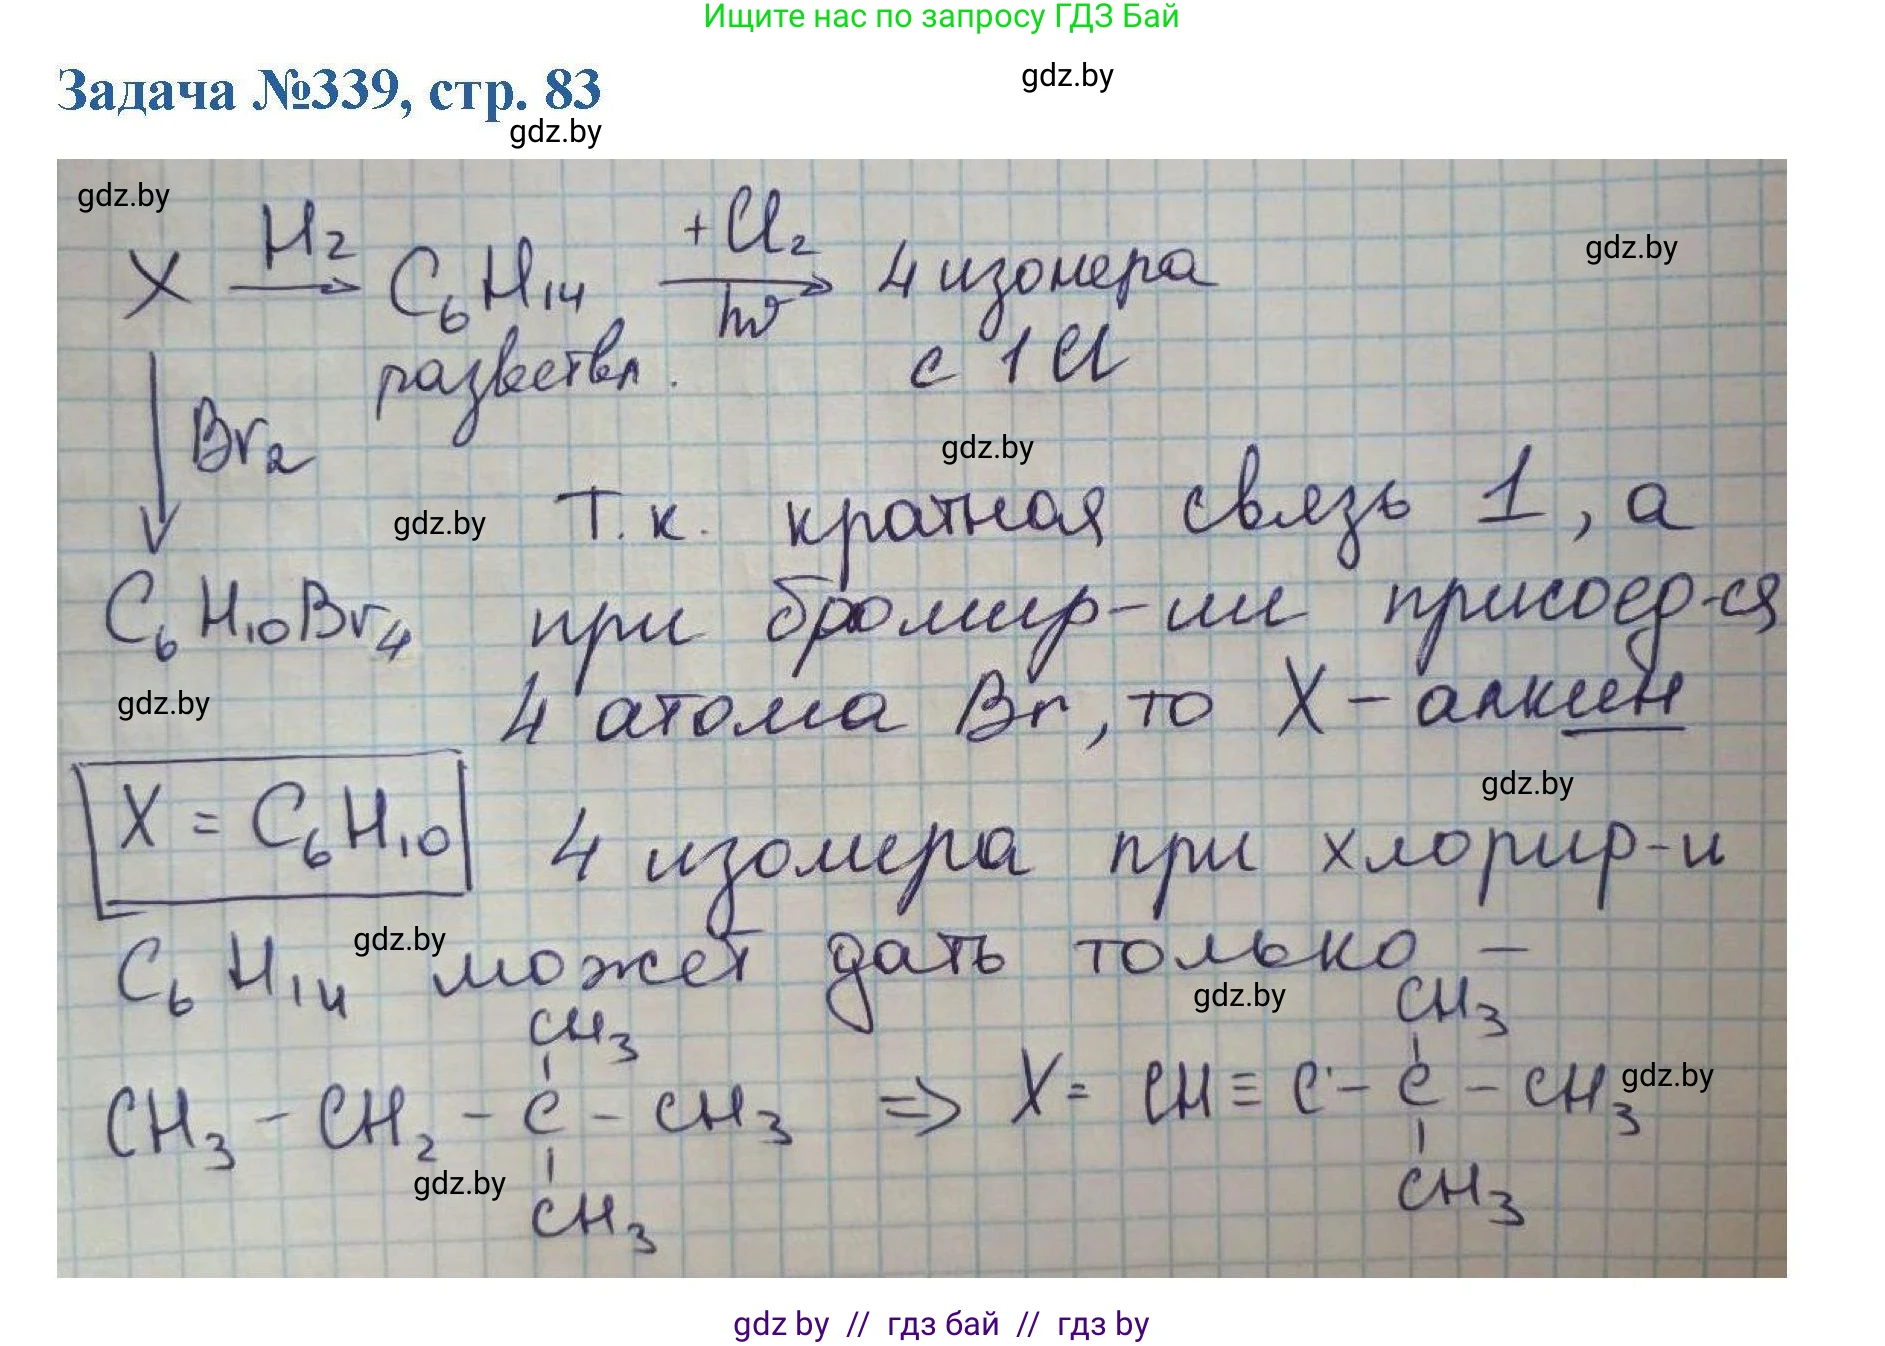 Ищите нас по запросу ГДЗ Бай
Задача №339, стр. 83
gdz.by
gdz.by
gdz.by
X H₂ → C₆H₁₄ +Cl₂ hν → 4 изомера
gdz.by
разветвл. с 1 Cl
↓ Br₂
gdz.by
gdz.by
Т.к. кратная связь 1, а
C₆H₁₀Br₄ при бромир-ии присоед-ся
gdz.by
4 атома Br, то X – алкин
gdz.by
X = C₆H₁₀ 4 изомера при хлорир-и
gdz.by
C₆H₁₄ может дать только –
gdz.by
CH₃ CH₃
gdz.by
CH₃ – CH₂ – C – CH₃ ⇒ X = CH ≡ C – C – CH₃
gdz.by
CH₃ CH₃
gdz by // гдз бай // гдз by